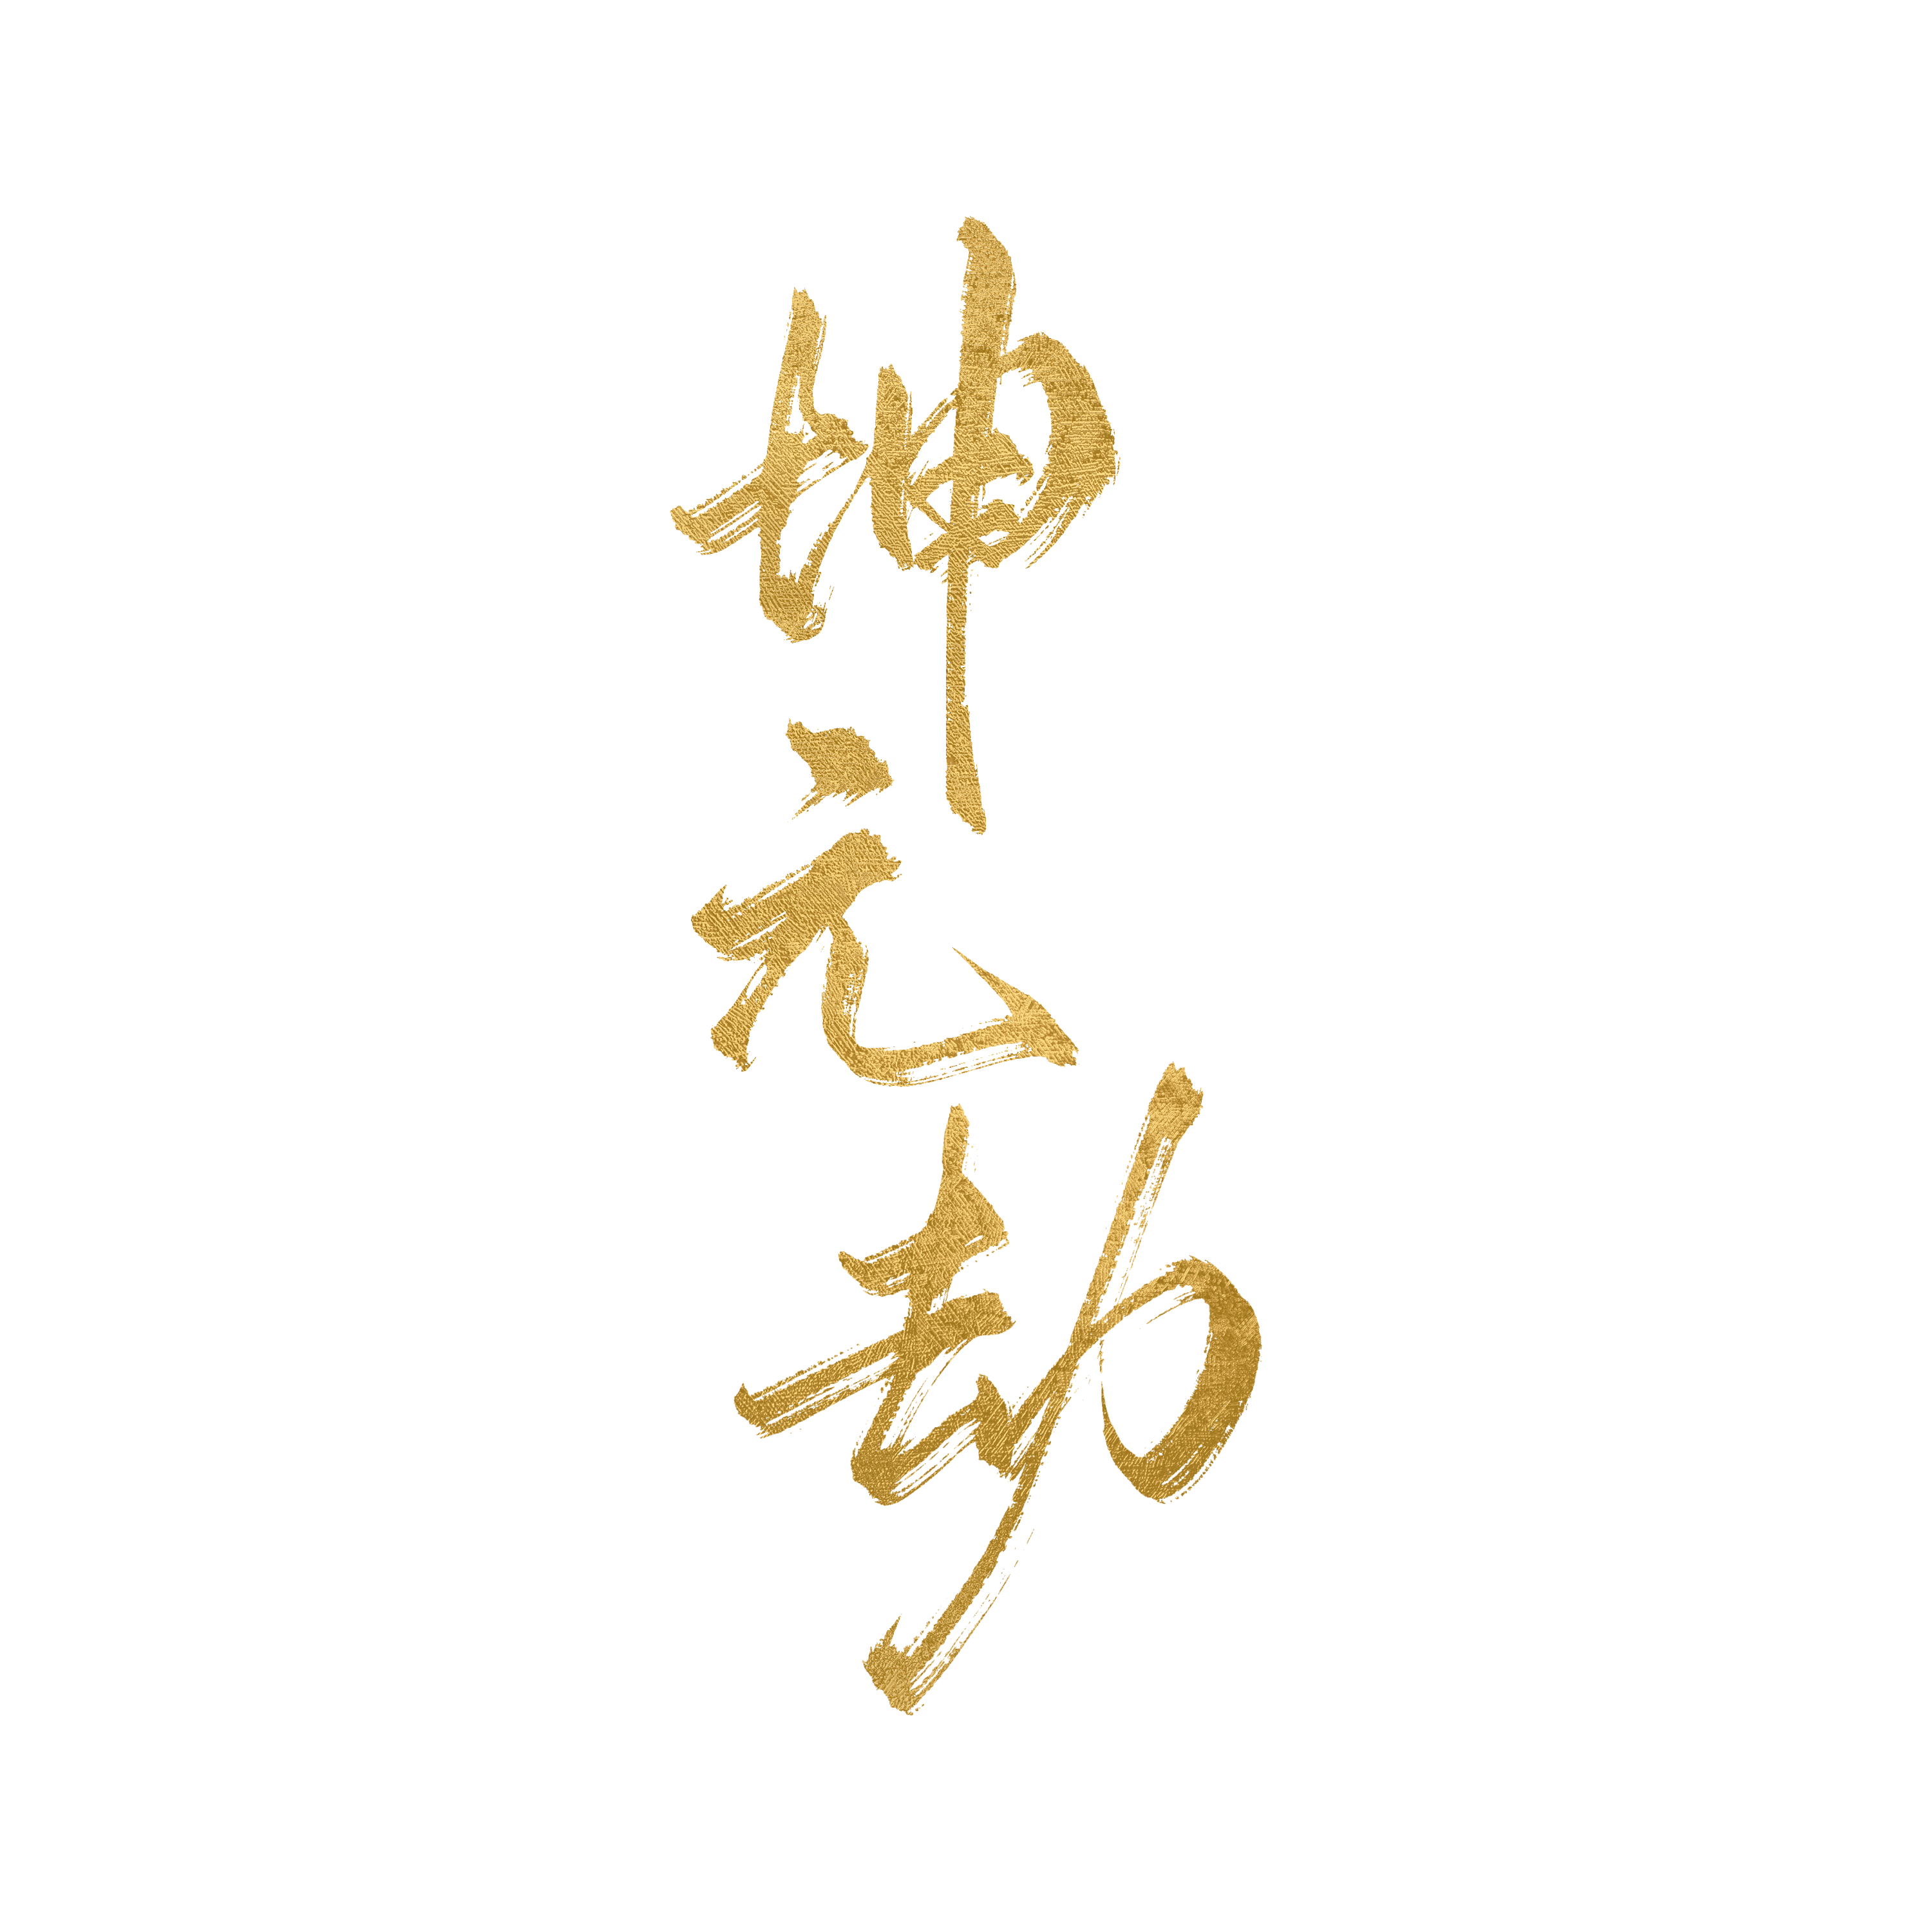 坤元劫